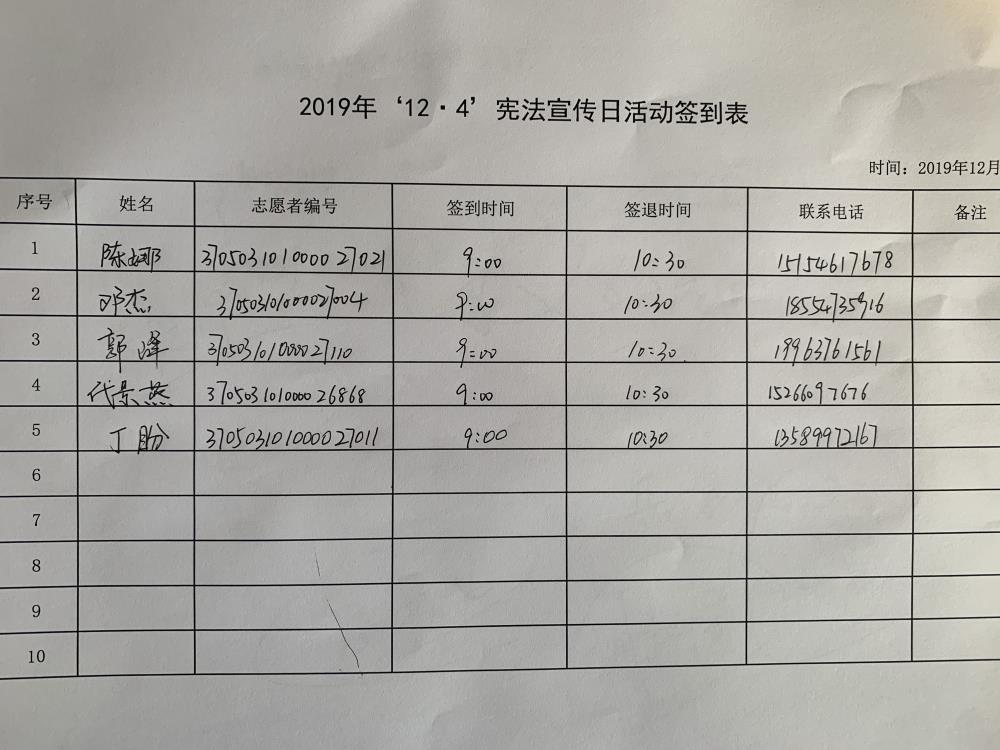 2019年‘12·4’宪法宣传日活动签到表
时间：2019年12月
序号 姓名 志愿者编号 签到时间 签退时间 联系电话 备注
1 陈娜 370503101000027021 9:00 10:30 15154617678
2 邓杰 370503101000027004 9:00 10:30 18554735916
3 郭峰 370503101000027110 9:00 10:30 19963761561
4 代景燕 370503101000026868 9:00 10:30 15266097676
5 丁盼 370503101000027011 9:00 10:30 13589972167
6
7
8
9
10